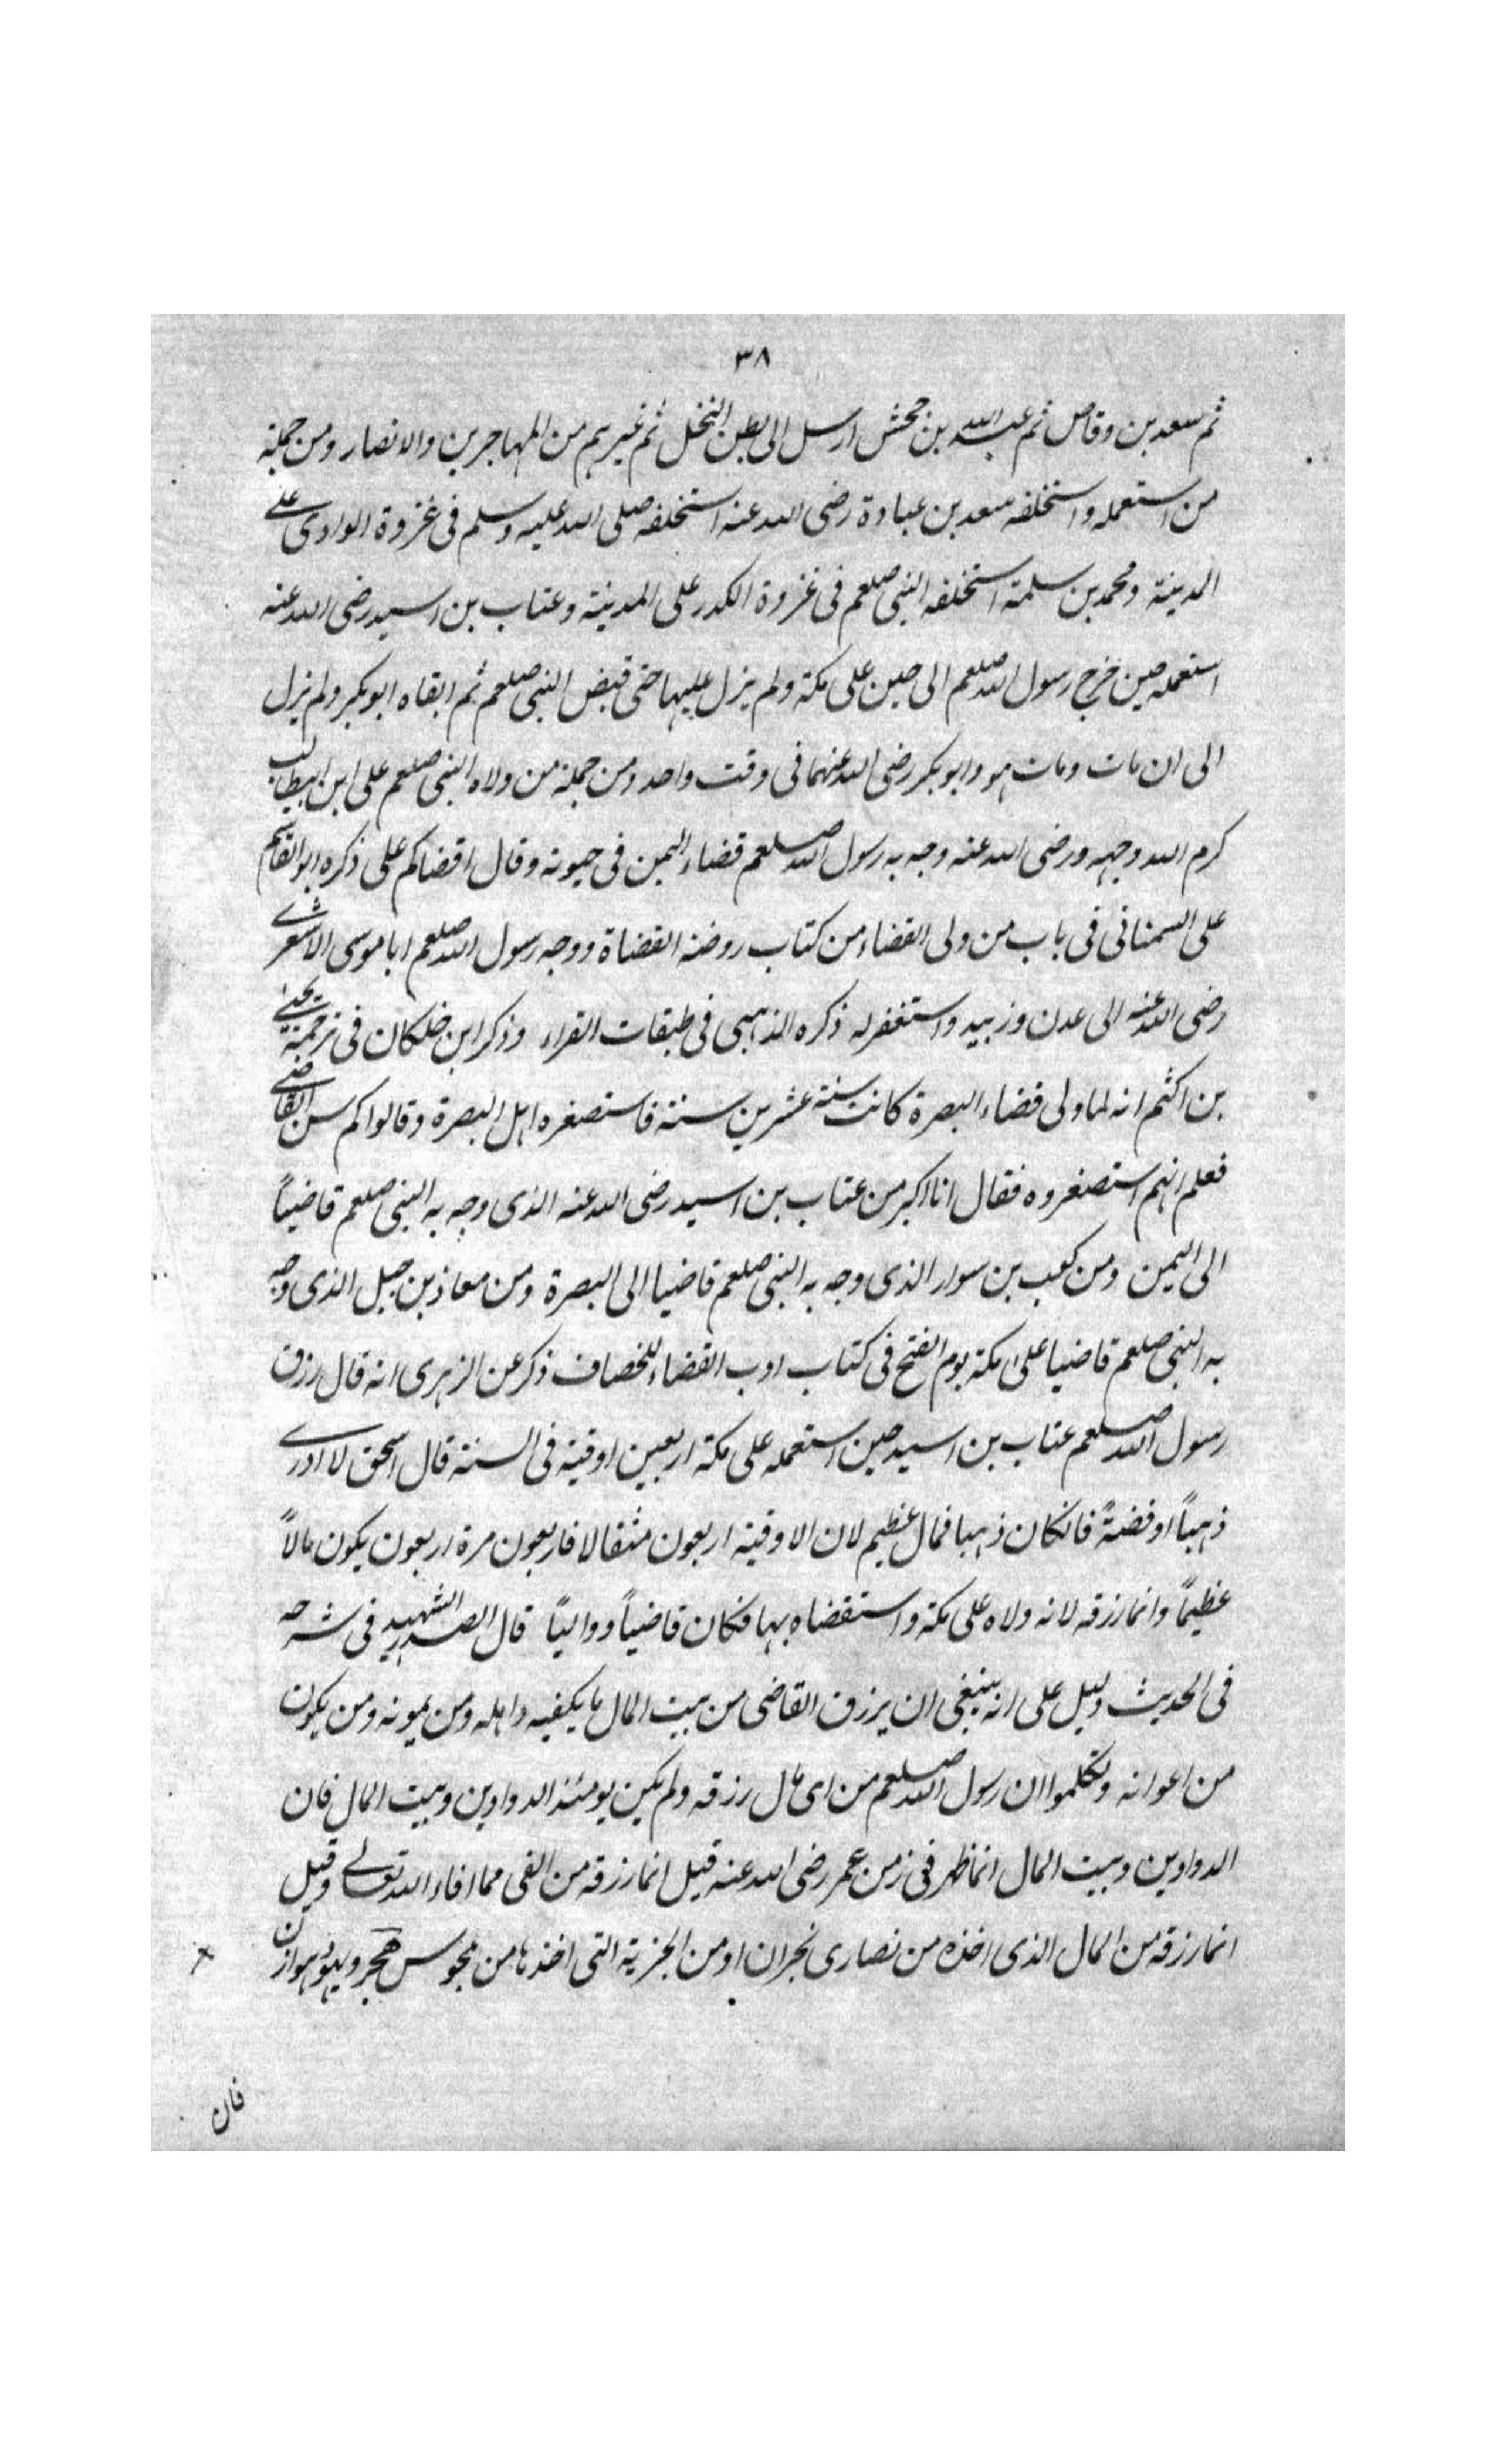 ٣٨
ثم سعد بن وقاص ثم عبد الله بن جحش ارسل الى بطن النخل ثم غيرهم من المهاجرين والانصار ومن جملة
من استعمله واستخلفه سعد بن عبادة رضى الله عنه استخلفه صلى الله عليه وسلم فى غزوة الوادى على
المدينة ومحمد بن سلمة استخلفه النبى صلعم فى غزوة الكدر على المدينة وعتاب بن اسيد رضى الله عنه
استعمله حين خرج رسول الله صلعم الى حين على مكة ولم يزل عليها حتى قبض النبى صلعم ثم ابقاه ابو بكر ولم يزل
الى ان مات ومات هو وابو بكر رضى الله عنهما فى وقت واحد ومن جملة من ولاه النبى صلعم على ابن ابيطالب
كرم الله وجهه ورضى الله عنه وجه به رسول الله صلعم قضاء اليمن فى حيوته وقال اقضاكم على ذكره ابو القاسم
على السمنانى فى باب من ولى القضاء من كتاب روضة القضاة ووجه رسول الله صلعم ابا موسى الاشعرى
رضى الله عنه الى عدن وزبيد واستغفر له ذكره الذهبى فى طبقات القراء وذكر ابن خلكان فى ترجمة يحيى
بن اكثم انه لما ولى قضاء البصرة كانت سنة عشرين سنة فاستصغره اهل البصرة وقالوا كم سن القاضى
فعلم انهم استصغروه فقال انا اكبر من عتاب بن اسيد رضى الله عنه الذى وجه به النبى صلعم قاضياً
الى اليمن ومن كعب بن سوار الذى وجه به النبى صلعم قاضيا الى البصرة ومن معاذ بن جبل الذى وجه
به النبى صلعم قاضيا على مكة يوم الفتح فى كتاب ادب القضاء للخصاف ذكر عن الزهرى انه قال رزق
رسول الله صلعم عتاب بن اسيد حين استعمله على مكة اربعين اوقية فى السنة قال اسحق لا ادرى
ذهباً او فضةً فانكان ذهبا فمال عظيم لان الاوقية اربعون مثقالا فاربعون مرة اربعون يكون مالاً
عظيماً وانما رزقه لانه ولاه على مكة واستقضاه بها فكان قاضياً ووالياً قال الصدر الشهيد فى شرحه
فى الحديث دليل على انه ينبغى ان يرزق القاضى من بيت المال ما يكفيه واهله ومن يمونه ومن يكون
من اعوانه وتكلموا ان رسول الله صلعم من اى مال رزقه ولم يكن يومئذ الدواوين وبيت المال فان
الدواوين وبيت المال انما ظهر فى زمن عمر رضى الله عنه قيل انما رزقه من الفى مما افاء الله تعالى وقيل
انما رزقه من المال الذى اخذه من نصارى نجران او من الجزية التى اخذها من مجوس هجر ويهود هوازن
فان